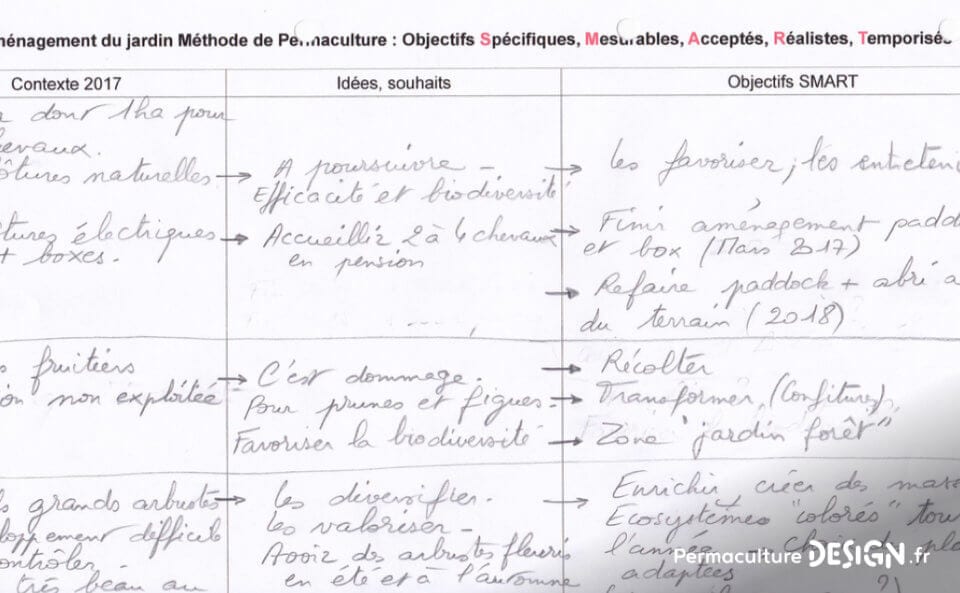 ménagement du jardin Méthode de Permaculture : Objectifs Spécifiques, Mesurables, Acceptés, Réalistes, Temporisés
Contexte 2017
Idées, souhaits
Objectifs SMART
dont 1ha pour
hevaux.
ôtures naturelles
A poursuivre -
Efficacité et biodiversité
Les favoriser, les entreteni
tures électriques
+ boxes.
Accueillir 2 à 4 chevaux
en pension
Finir aménagement paddo
et box (Mars 2017)
Refaire paddock + abri a
du terrain (2018)
s fruitiers
ion non exploitée
C'est dommage.
Pour prunes et figues.
Favoriser la biodiversité
Récolter
Transformer (Confitures)
Zone "jardin forêt"
s grands arbustes
loppement difficile
ontrôler
très beau au
Les diversifier.
Les valoriser -
Avoir des arbustes fleuris
en été et à l'automne
Enrichir, créer des mass
Ecosystèmes "colorés" tou
l'année - choix de pla
adaptées
PermacultureDESIGN.fr